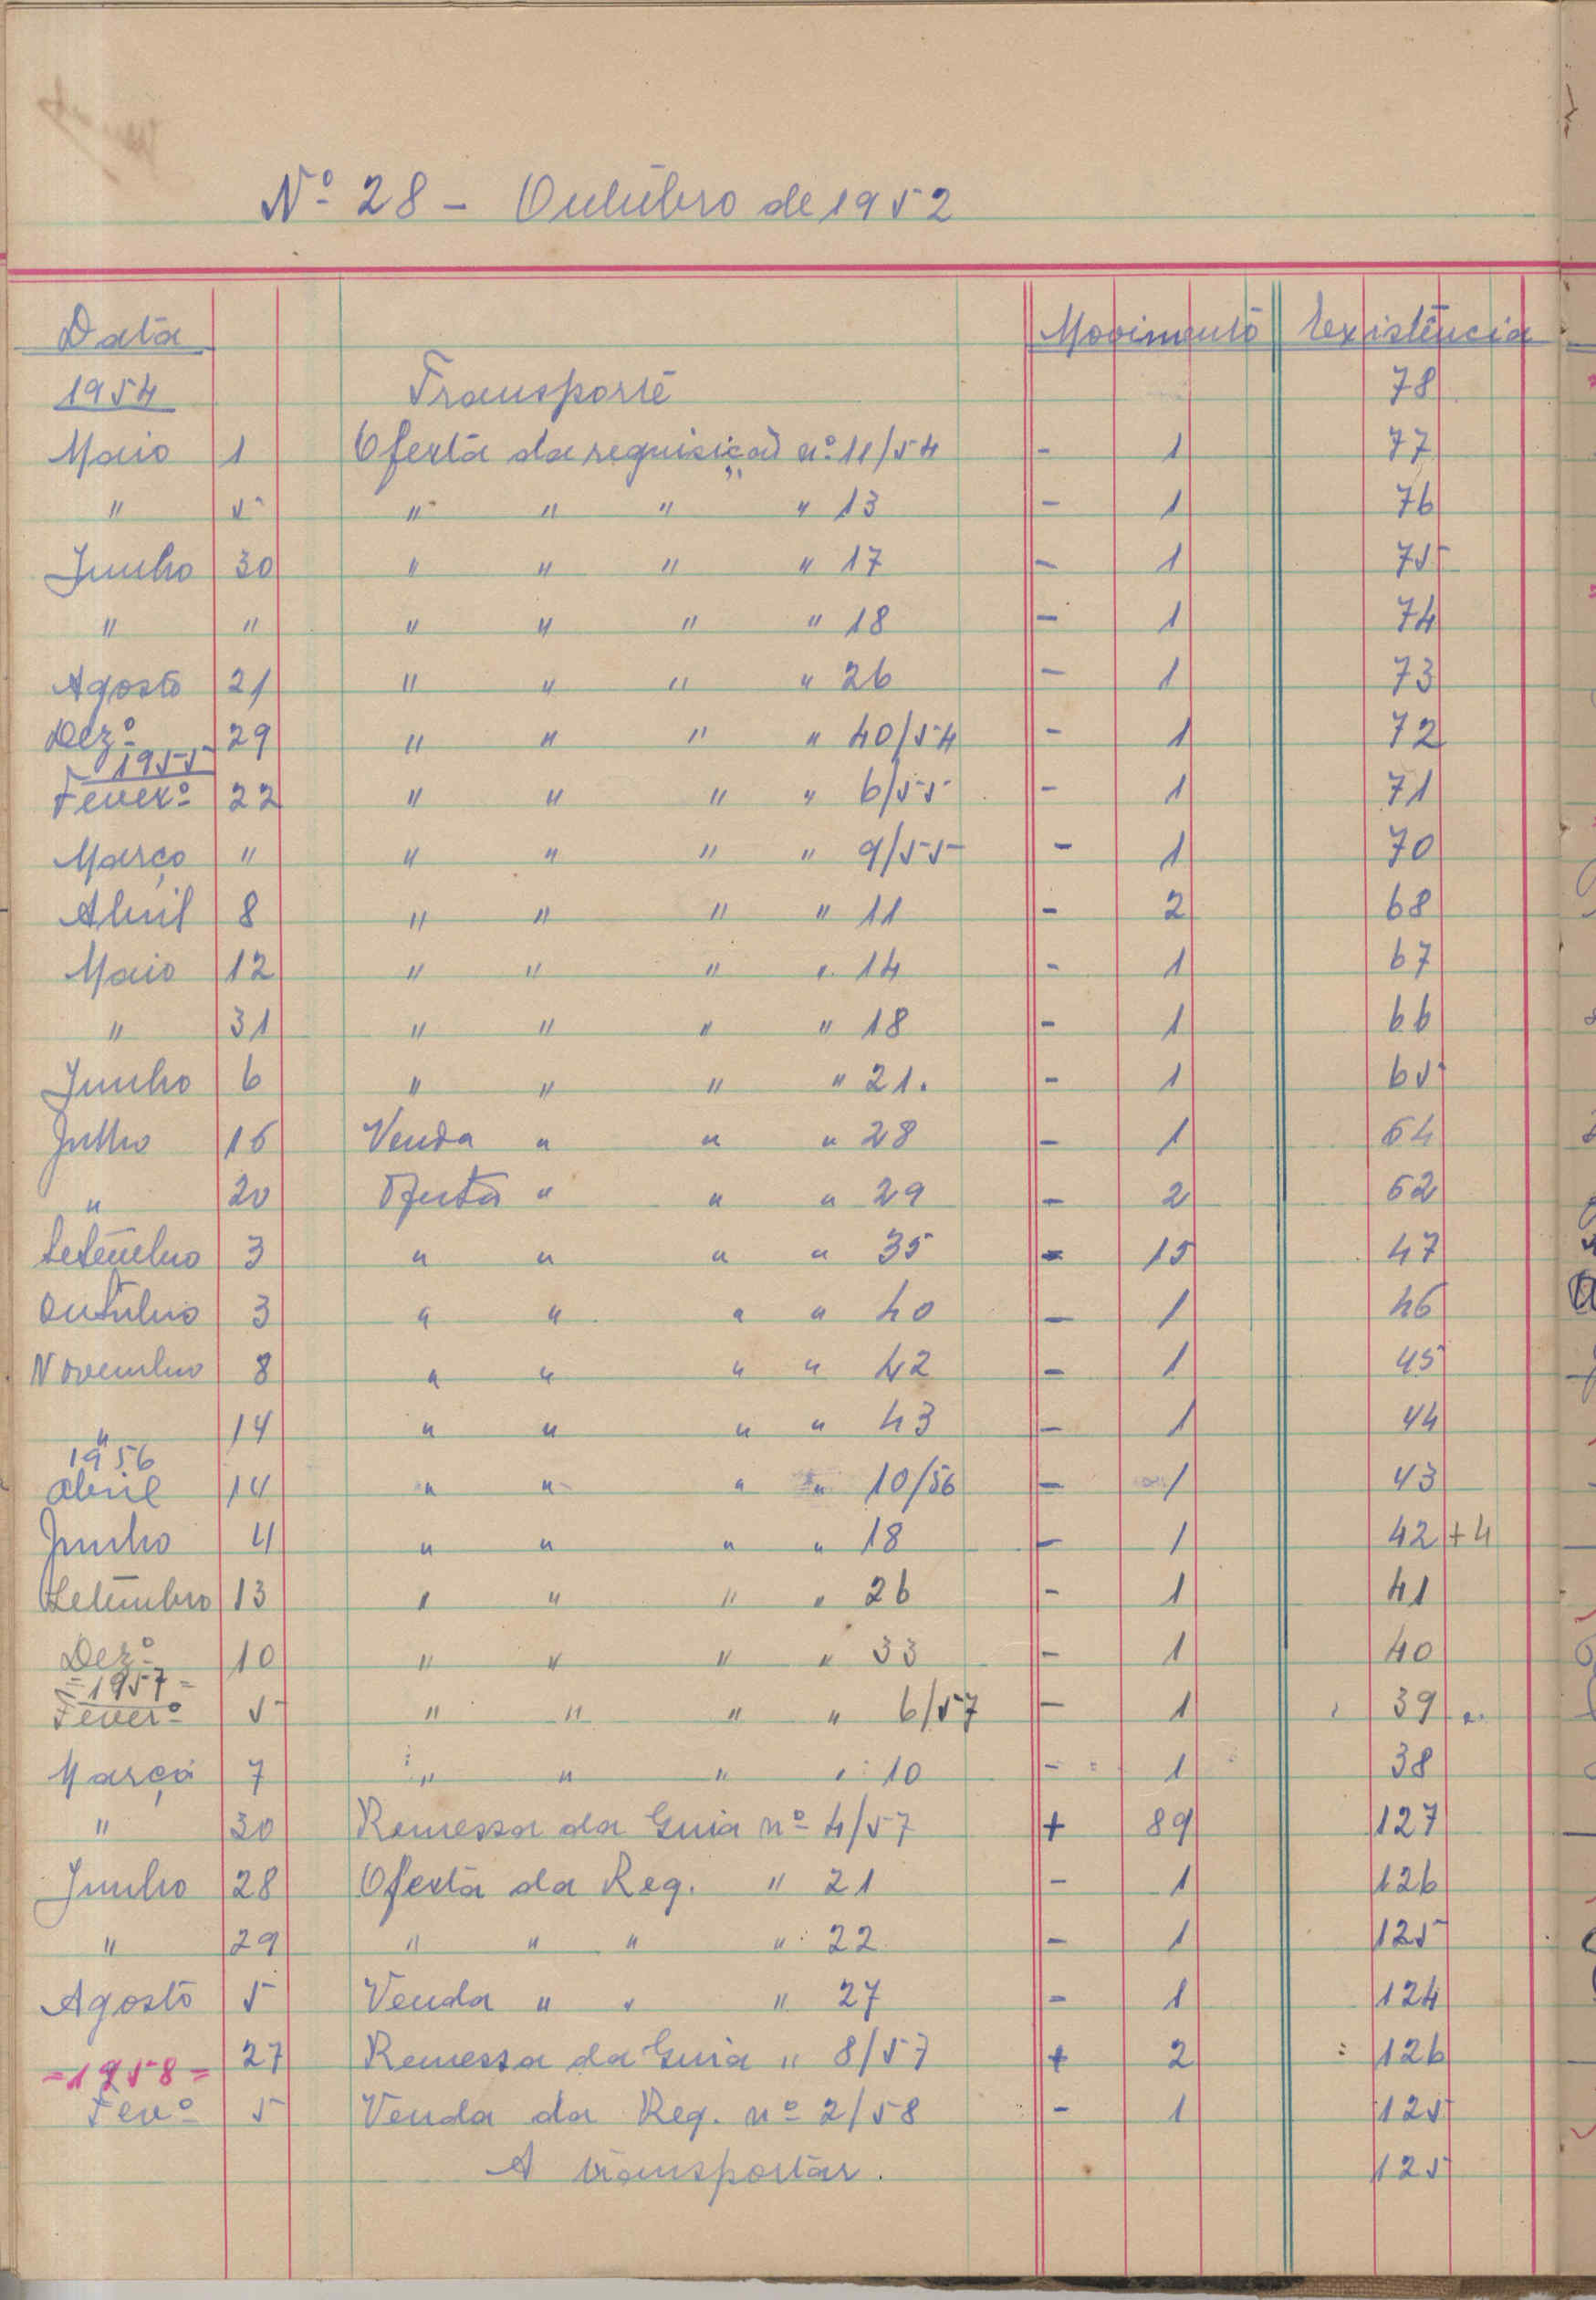 Nº 28 - Outubro de 1952
Data Movimento Existência
1954 Transporte 78
Maio 1 Oferta da requisição nº 11/54 - 1 77
" 5 " " " " 13 - 1 76
Junho 30 " " " " 17 - 1 75
" " " " " " 18 - 1 74
Agosto 21 " " " " 26 - 1 73
Dezº 29 " " " " 40/54 - 1 72
1955
Feverº 22 " " " " 6/55 - 1 71
Março " " " " " 9/55 - 1 70
Abril 8 " " " " 11 - 2 68
Maio 12 " " " " 14 - 1 67
" 31 " " " " 18 - 1 66
Junho 6 " " " " 21. - 1 65
Julho 16 Venda " " " 28 - 1 64
" 20 Oferta " " " 29 - 2 62
Setembro 3 " " " " 35 - 15 47
Outubro 3 " " " " 40 - 1 46
Novembro 8 " " " " 42 - 1 45
" 14 " " " " 43 - 1 44
1956
Abril 14 " " " " 10/56 - 1 43
Junho 4 " " " " 18 - 1 42 +4
Setembro 13 " " " " 26 - 1 41
Dezº 10 " " " " 33 - 1 40
=1957=
Feverº 5 " " " " 6/57 - 1 39
Março 7 " " " " 10 - 1 38
" 30 Remessa da Guia nº 4/57 + 89 127
Junho 28 Oferta da Req. " 21 - 1 126
" 29 " " " " 22 - 1 125
Agosto 5 Venda " " " 27 - 1 124
27 Remessa da Guia " 8/57 + 2 126
=1958=
Fevº 5 Venda da Req. nº 2/58 - 1 125
A transportar. 125